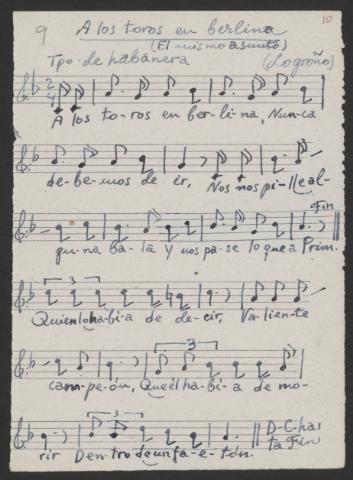 9
10
A los toros en berlina
(El mismo asunto)
Tpo. de habanera
(Logroño)
2
4
A los to-ros en ber-li-na, Nun-ca
de-be-mos de ir, Nos nos pi-lle al-
Fin
gu-na ba-la Y nos pa-se lo que a Prim.
3
Quien lo ha-bí-a de de-cir, Va-lien-te
3
cam-pe-ón, Que él ha-bí-a de mo-
3
D-C-has
ta Fin
rir Den-tro de un fa-e-tón.